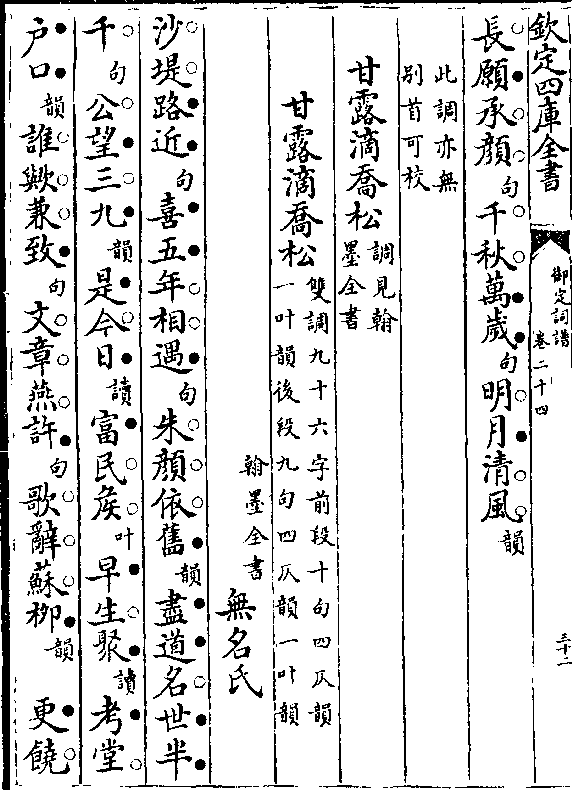 欽定四庫全書
御定詞譜
卷二十四
三十二
長願承顔句千秋萬歲句明月清風韻
此調亦無
别首可校
甘露滴喬松調見翰
墨全書
甘露滴喬松雙調九十六字前段十句四仄韻
一叶韻後段九句四仄韻一叶韻
翰墨全書
無名氏
沙堤路近句喜五年相遇句朱顔依舊韻盡道名世半
千句公望三九韻是今日讀富民矦叶早生聚讀考堂
户口韻誰歟兼致句文章燕許句歌辭蘇柳韻更饒